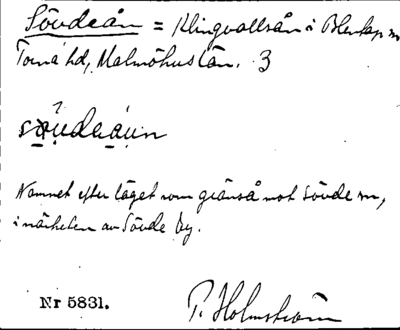 Sövdeån = Klingvallsån i Blentarp sn
Torna hd, Malmöhus län. 3
Namnet efter läget som gränså mot Sövde sn,
i närheten av Sövde by.
Nr 5831. P. Holmström